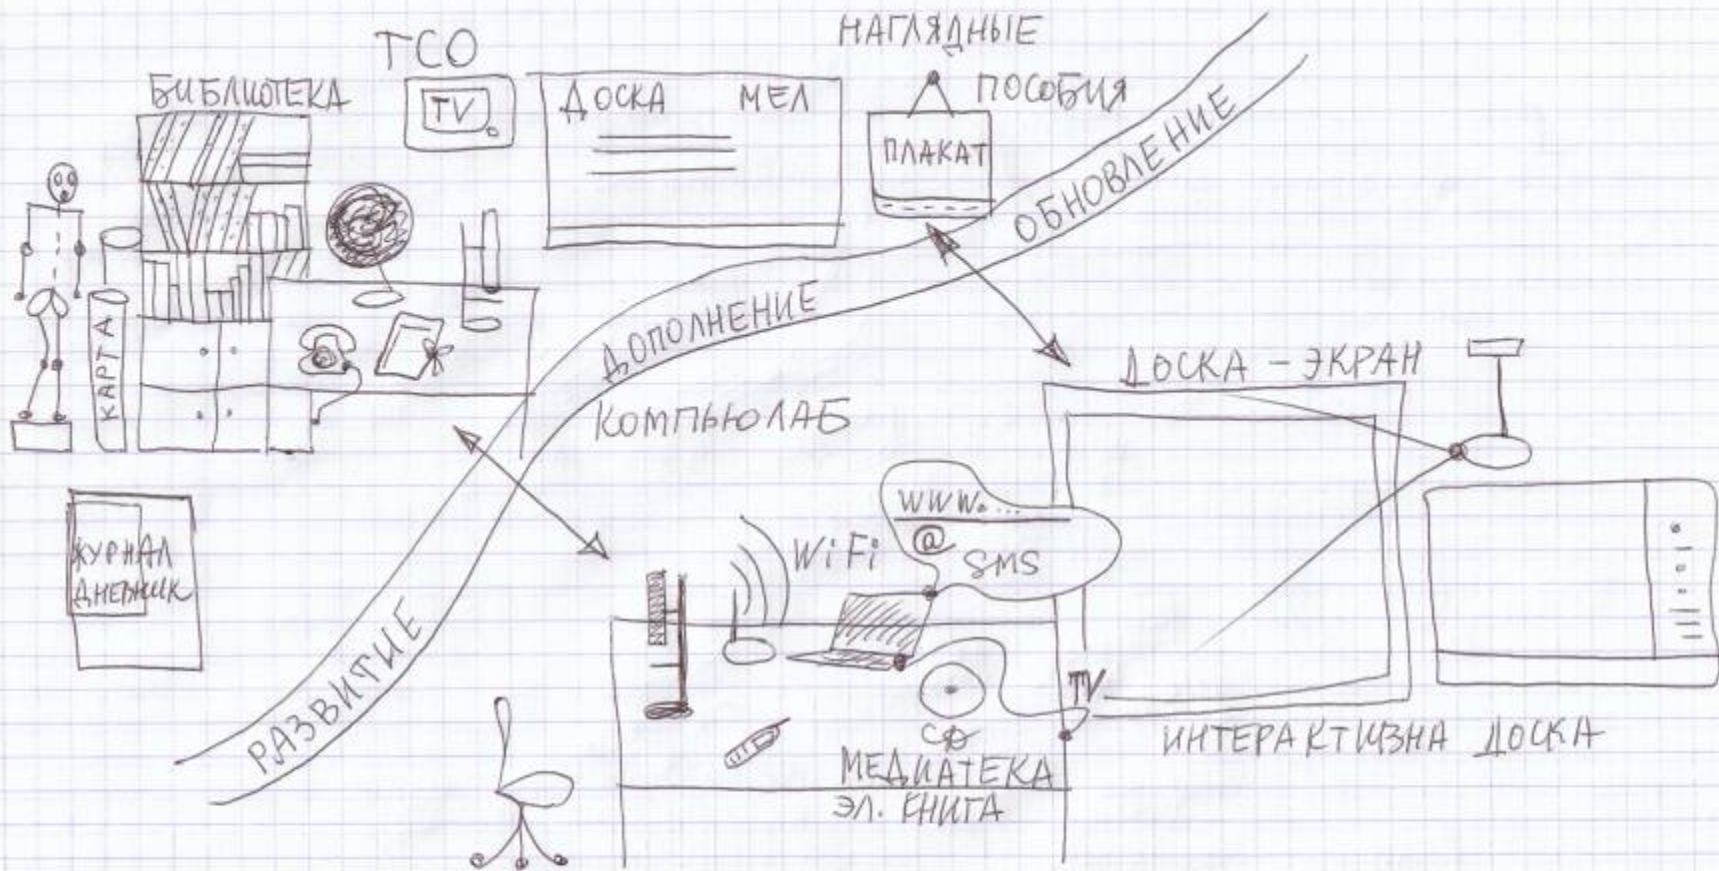 ТСО
НАГЛЯДНЫЕ
ПОСОБИЯ
БИБЛИОТЕКА
TV
ДОСКА МЕЛ
ПЛАКАТ
КАРТА
ОБНОВЛЕНИЕ
ДОПОЛНЕНИЕ
РАЗВИТИЕ
КОМПЬЮЛАБ
ДОСКА - ЭКРАН
ЖУРНАЛ
ДНЕВНИК
WiFi
WWW....
@
SMS
TV
CD
МЕДИАТЕКА
ЭЛ. КНИГА
ИНТЕРАКТИВНА ДОСКА